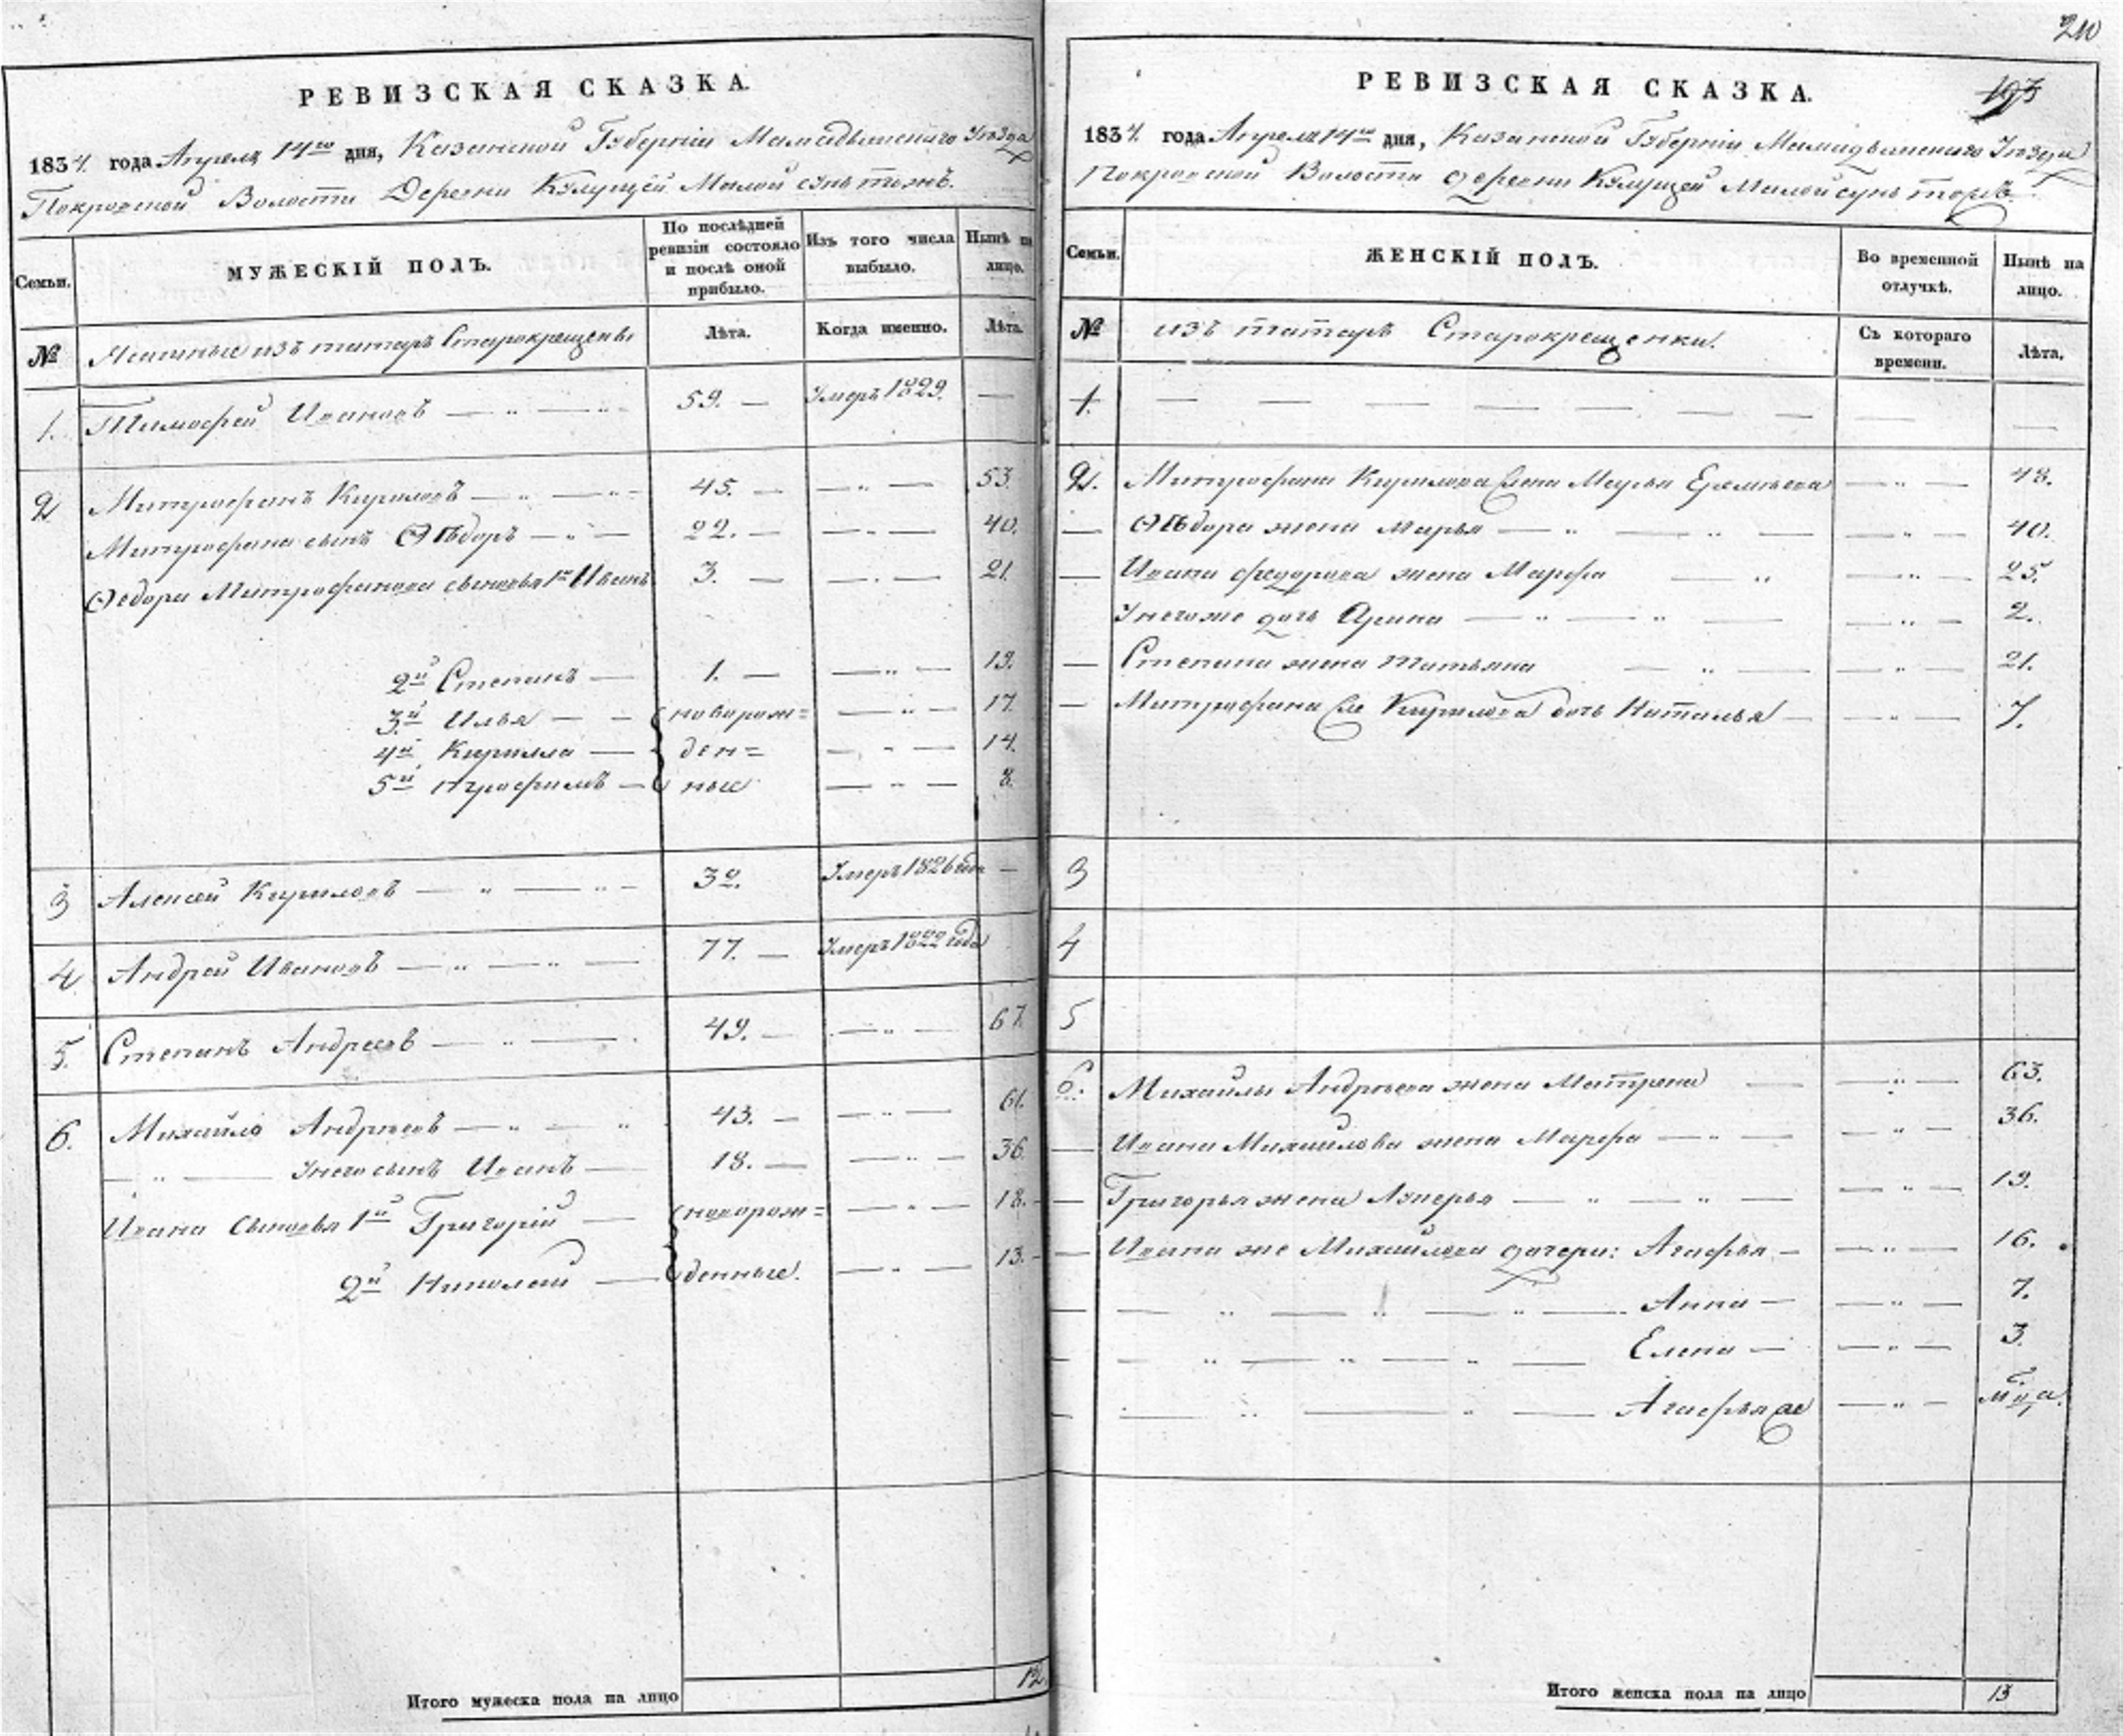 210
РЕВИЗСКАЯ СКАЗКА.
1834. года Апреля 14го дня, Казанской Губерніи Мамадышскаго Уѣзда
Покровской Волости Деревни Кулущей Малой сунь тожъ.
Семьи.
МУЖЕСКІЙ ПОЛЪ.
По послѣдней ревизіи состояло и послѣ оной прибыло.
Изъ того числа выбыло.
Нынѣ на лицо.
№ изъ татаръ Старокрещены
Лѣта.
Когда именно.
Лѣта.
1. Тимофей Ивановъ 59. Умеръ 1829.
2 Митрофанъ Кириловъ 45. 53.
Митрофана сынъ Ѳѣдоръ 22. 40.
Ѳедора Митрофанова сыновья 1й Иванъ 3. 21.
2й Степанъ 1. 19.
3й Илья новорож= 17.
4й Кирилла ден= 14.
5й Трофимъ ные 8.
3 Алексѣй Кириловъ 32. Умеръ 1826 года
4 Андрей Ивановъ 77. Умеръ 1822 года
5. Степанъ Андреевъ 49. 67.
6. Михайло Андрѣевъ 43. 61.
У него сынъ Иванъ 18. 36.
Ивана Сыновья 1й Григорій новорож= 18.
2й Николай денные. 13.
Итого мужеска пола на лицо 12.
РЕВИЗСКАЯ СКАЗКА.
193
1834. года Апреля 14го дня, Казанской Губерніи Мамадышскаго Уѣзда
Покровской Волости деревни Кулущей Малой сунь тожъ.
Семьи.
ЖЕНСКІЙ ПОЛЪ.
Во временной отлучкѣ.
Нынѣ на лицо.
№ изъ татаръ Старокрещенки.
Съ котораго времени.
Лѣта.
1.
2. Митрофана Кирилова жена Марья Еремѣева 48.
Ѳѣдора жена Марья 40.
Ивана федорова жена Марфа 25.
У него же дочь Арина 2.
Степана жена Татьяна 21.
Митрофана Кирилова дочь Наталья 7.
3
4
5
6. Михайлы Андрѣева жена Матрена 63.
Ивана Михайлова жена Марфа 36.
Григорья жена Лукерья 19.
Ивана же Михайлова дочери: Агафья 16.
Анна 7.
Елена 3.
Агафья
Итого женска пола на лицо 13